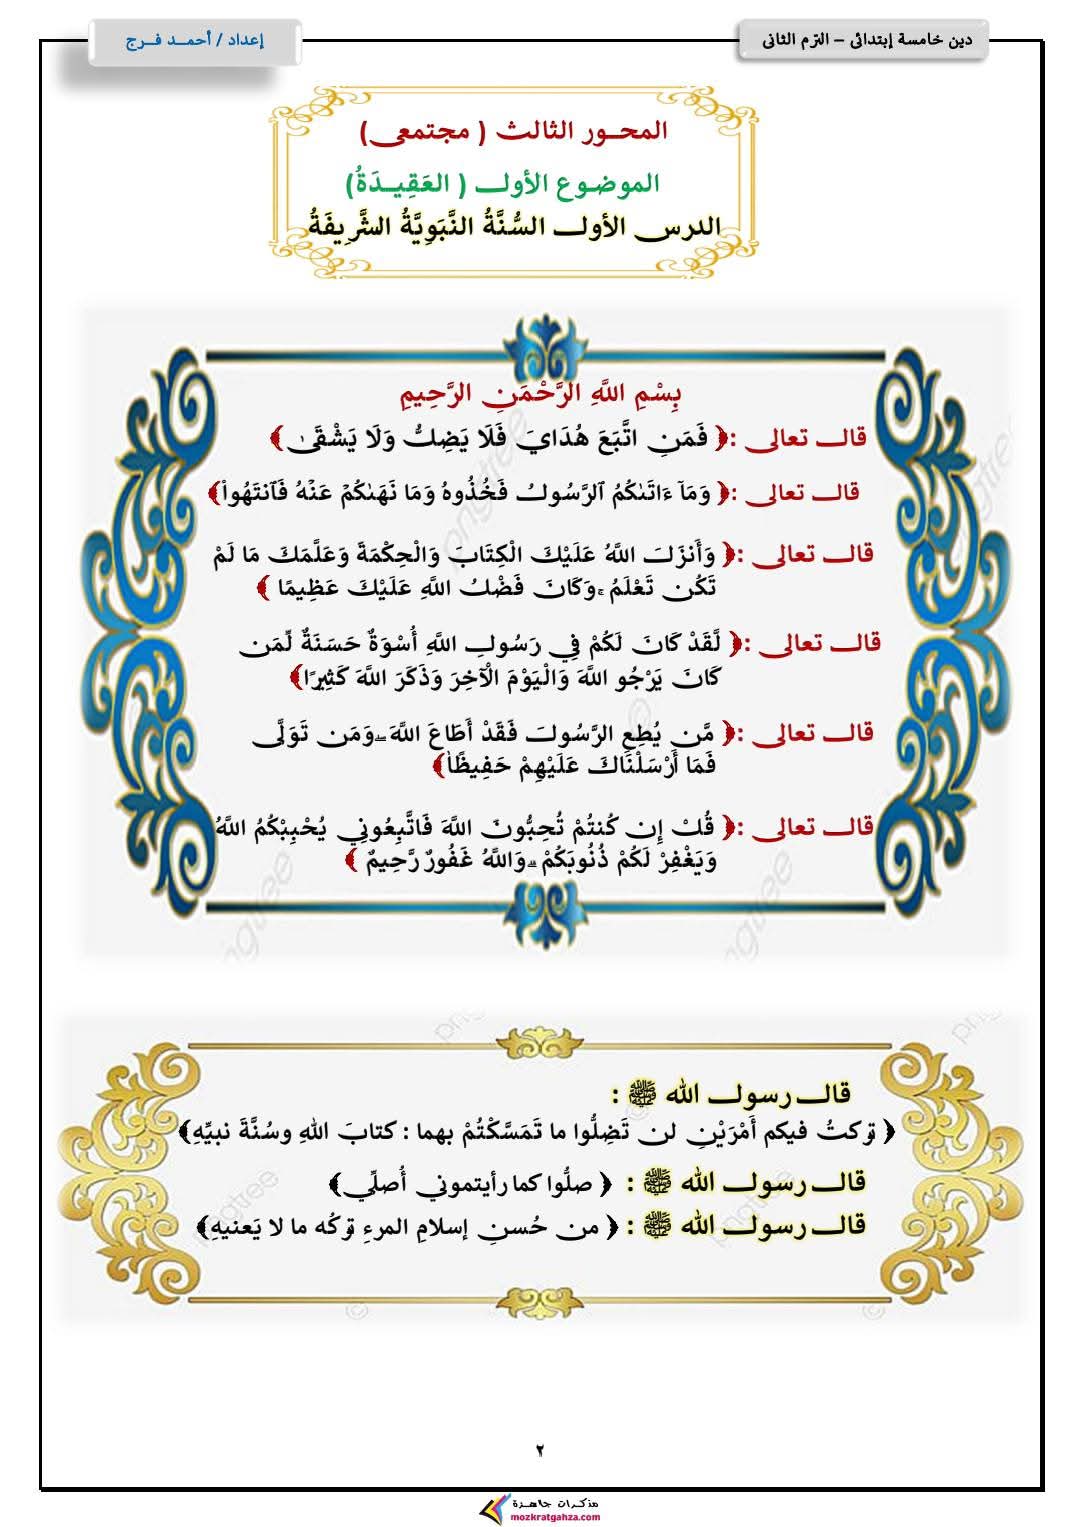 دين خامسة إبتدائى – الترم الثانى
إعداد / أحمــد فــرج
المحــور الثالث ( مجتمعى)
الموضوع الأول ( العَقِيــدَةُ)
الدرس الأول السُّنَّةُ النَّبَوِيَّةُ الشَّرِيفَةُ
بِسْمِ اللَّهِ الرَّحْمَنِ الرَّحِيمِ
قال تعالى :﴿ فَمَنِ اتَّبَعَ هُدَايَ فَلَا يَضِلُّ وَلَا يَشْقَىٰ ﴾
قال تعالى :﴿ وَمَآ ءَاتَىٰكُمُ ٱلرَّسُولُ فَخُذُوهُ وَمَا نَهَىٰكُمْ عَنْهُ فَٱنتَهُوا۟﴾
قال تعالى :﴿ وَأَنزَلَ اللَّهُ عَلَيْكَ الْكِتَابَ وَالْحِكْمَةَ وَعَلَّمَكَ مَا لَمْ
تَكُن تَعْلَمُ ۚ وَكَانَ فَضْلُ اللَّهِ عَلَيْكَ عَظِيمًا ﴾
قال تعالى :﴿ لَّقَدْ كَانَ لَكُمْ فِي رَسُولِ اللَّهِ أُسْوَةٌ حَسَنَةٌ لِّمَن
كَانَ يَرْجُو اللَّهَ وَالْيَوْمَ الْآخِرَ وَذَكَرَ اللَّهَ كَثِيرًا﴾
قال تعالى :﴿ مَّن يُطِعِ الرَّسُولَ فَقَدْ أَطَاعَ اللَّهَ ۖ وَمَن تَوَلَّى
فَمَا أَرْسَلْنَاكَ عَلَيْهِمْ حَفِيظًا﴾
قال تعالى :﴿ قُلْ إِن كُنتُمْ تُحِبُّونَ اللَّهَ فَاتَّبِعُونِي يُحْبِبْكُمُ اللَّهُ
وَيَغْفِرْ لَكُمْ ذُنُوبَكُمْ ۗ وَاللَّهُ غَفُورٌ رَّحِيمٌ ﴾
قال رسول الله ﷺ :
﴿ تركتُ فيكم أَمْرَيْنِ لن تَضِلُّوا ما تَمَسَّكْتُمْ بهما : كتابَ اللهِ وسُنَّةَ نبيِّهِ﴾
قال رسول الله ﷺ : ﴿ صلُّوا كما رأيتموني أُصلِّي﴾
قال رسول الله ﷺ : ﴿ من حُسنِ إسلامِ المرءِ تركُه ما لا يَعنيهِ﴾
٢
مذكرات جاهزة
mozkratgahza.com